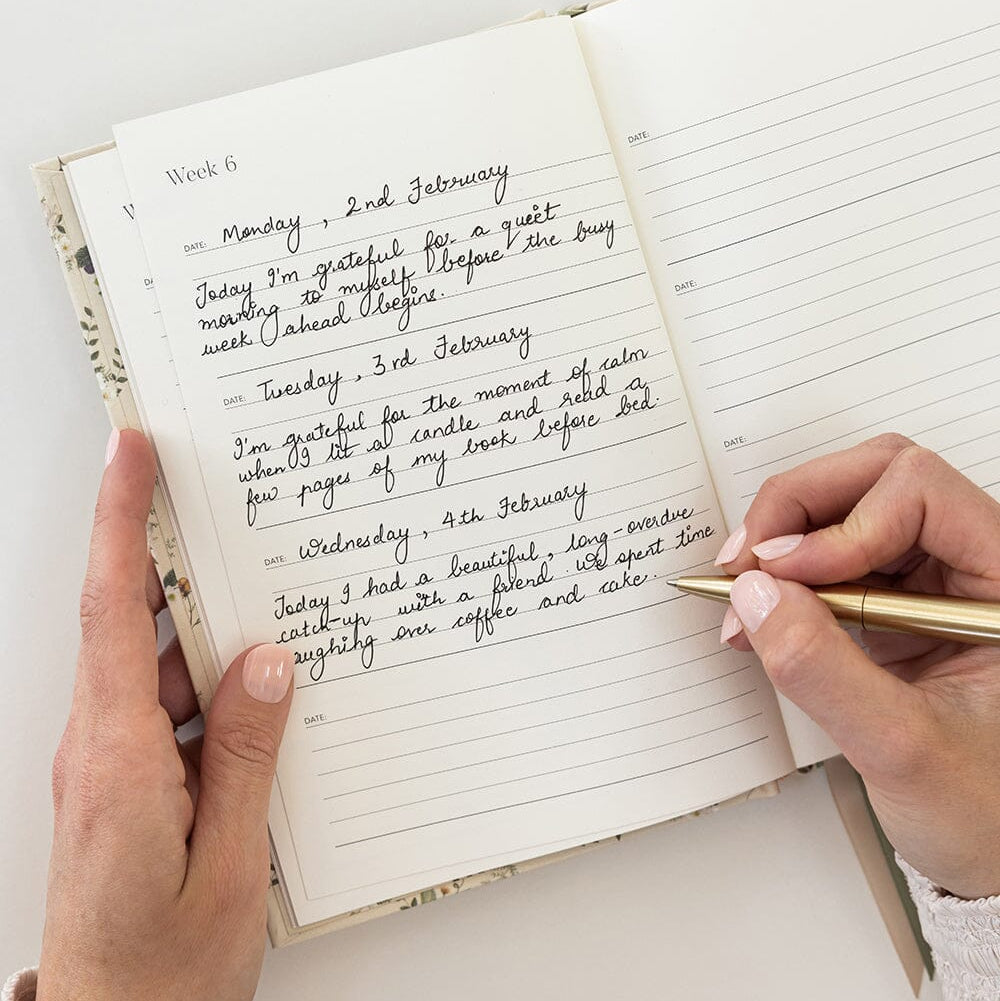 Week 6
DATE: Monday, 2nd February
Today I'm grateful for a quiet
morning to myself before the busy
week ahead begins.
DATE: Tuesday, 3rd February
I'm grateful for the moment of calm
when I lit a candle and read a
few pages of my book before bed.
DATE: Wednesday, 4th February
Today I had a beautiful, long-overdue
catch-up with a friend. We spent time
laughing over coffee and cake.
DATE:
DATE:
DATE:
DATE: